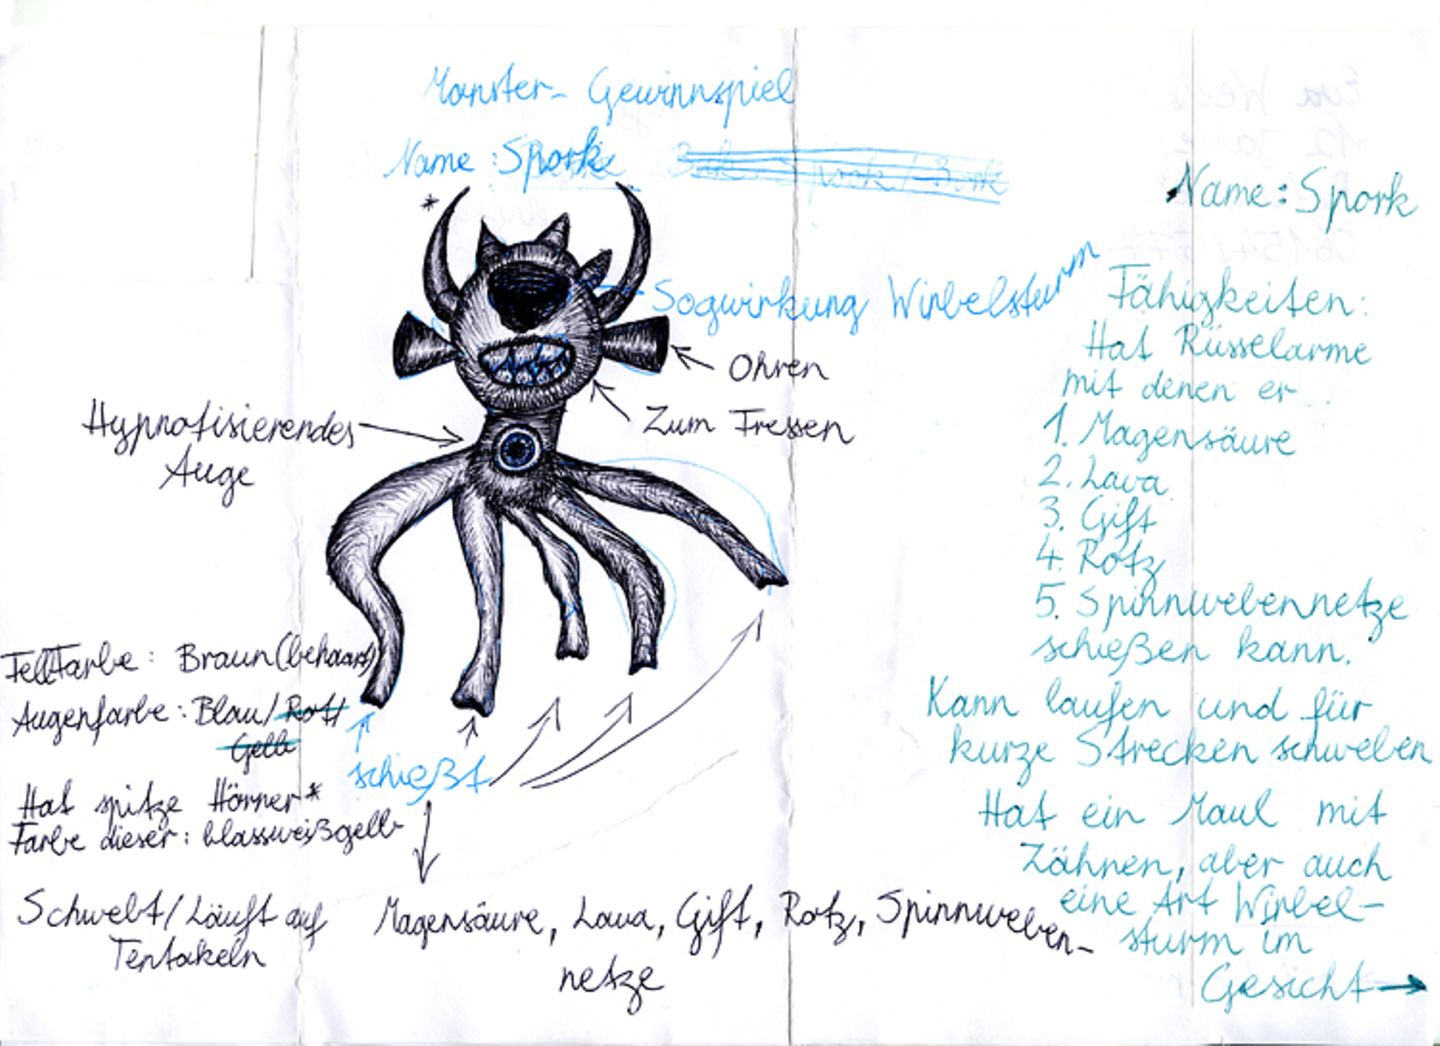 Monster- Gewinnspiel
Name: Spork
*
Sogwirkung Wirbelsturm
Ohren
Zum Fressen
Hypnotisierendes
Auge
Fellfarbe: Braun (behaart)
Augenfarbe: Blau/ Rot/
Gelb
schießt
Hat spitze Hörner*
Farbe dieser: blassweißgelb
Schwebt/Läuft auf
Tentakeln
Magensäure, Lava, Gift, Rotz, Spinnweben-
netze
Name: Spork
Fähigkeiten:
Hat Rüsselarme
mit denen er
1. Magensäure
2. Lava
3. Gift
4. Rotz
5. Spinnwebennetze
schießen kann.
Kann laufen und für
kurze Strecken schweben
Hat ein Maul mit
Zähnen, aber auch
eine Art Wirbel-
sturm im
Gesicht →